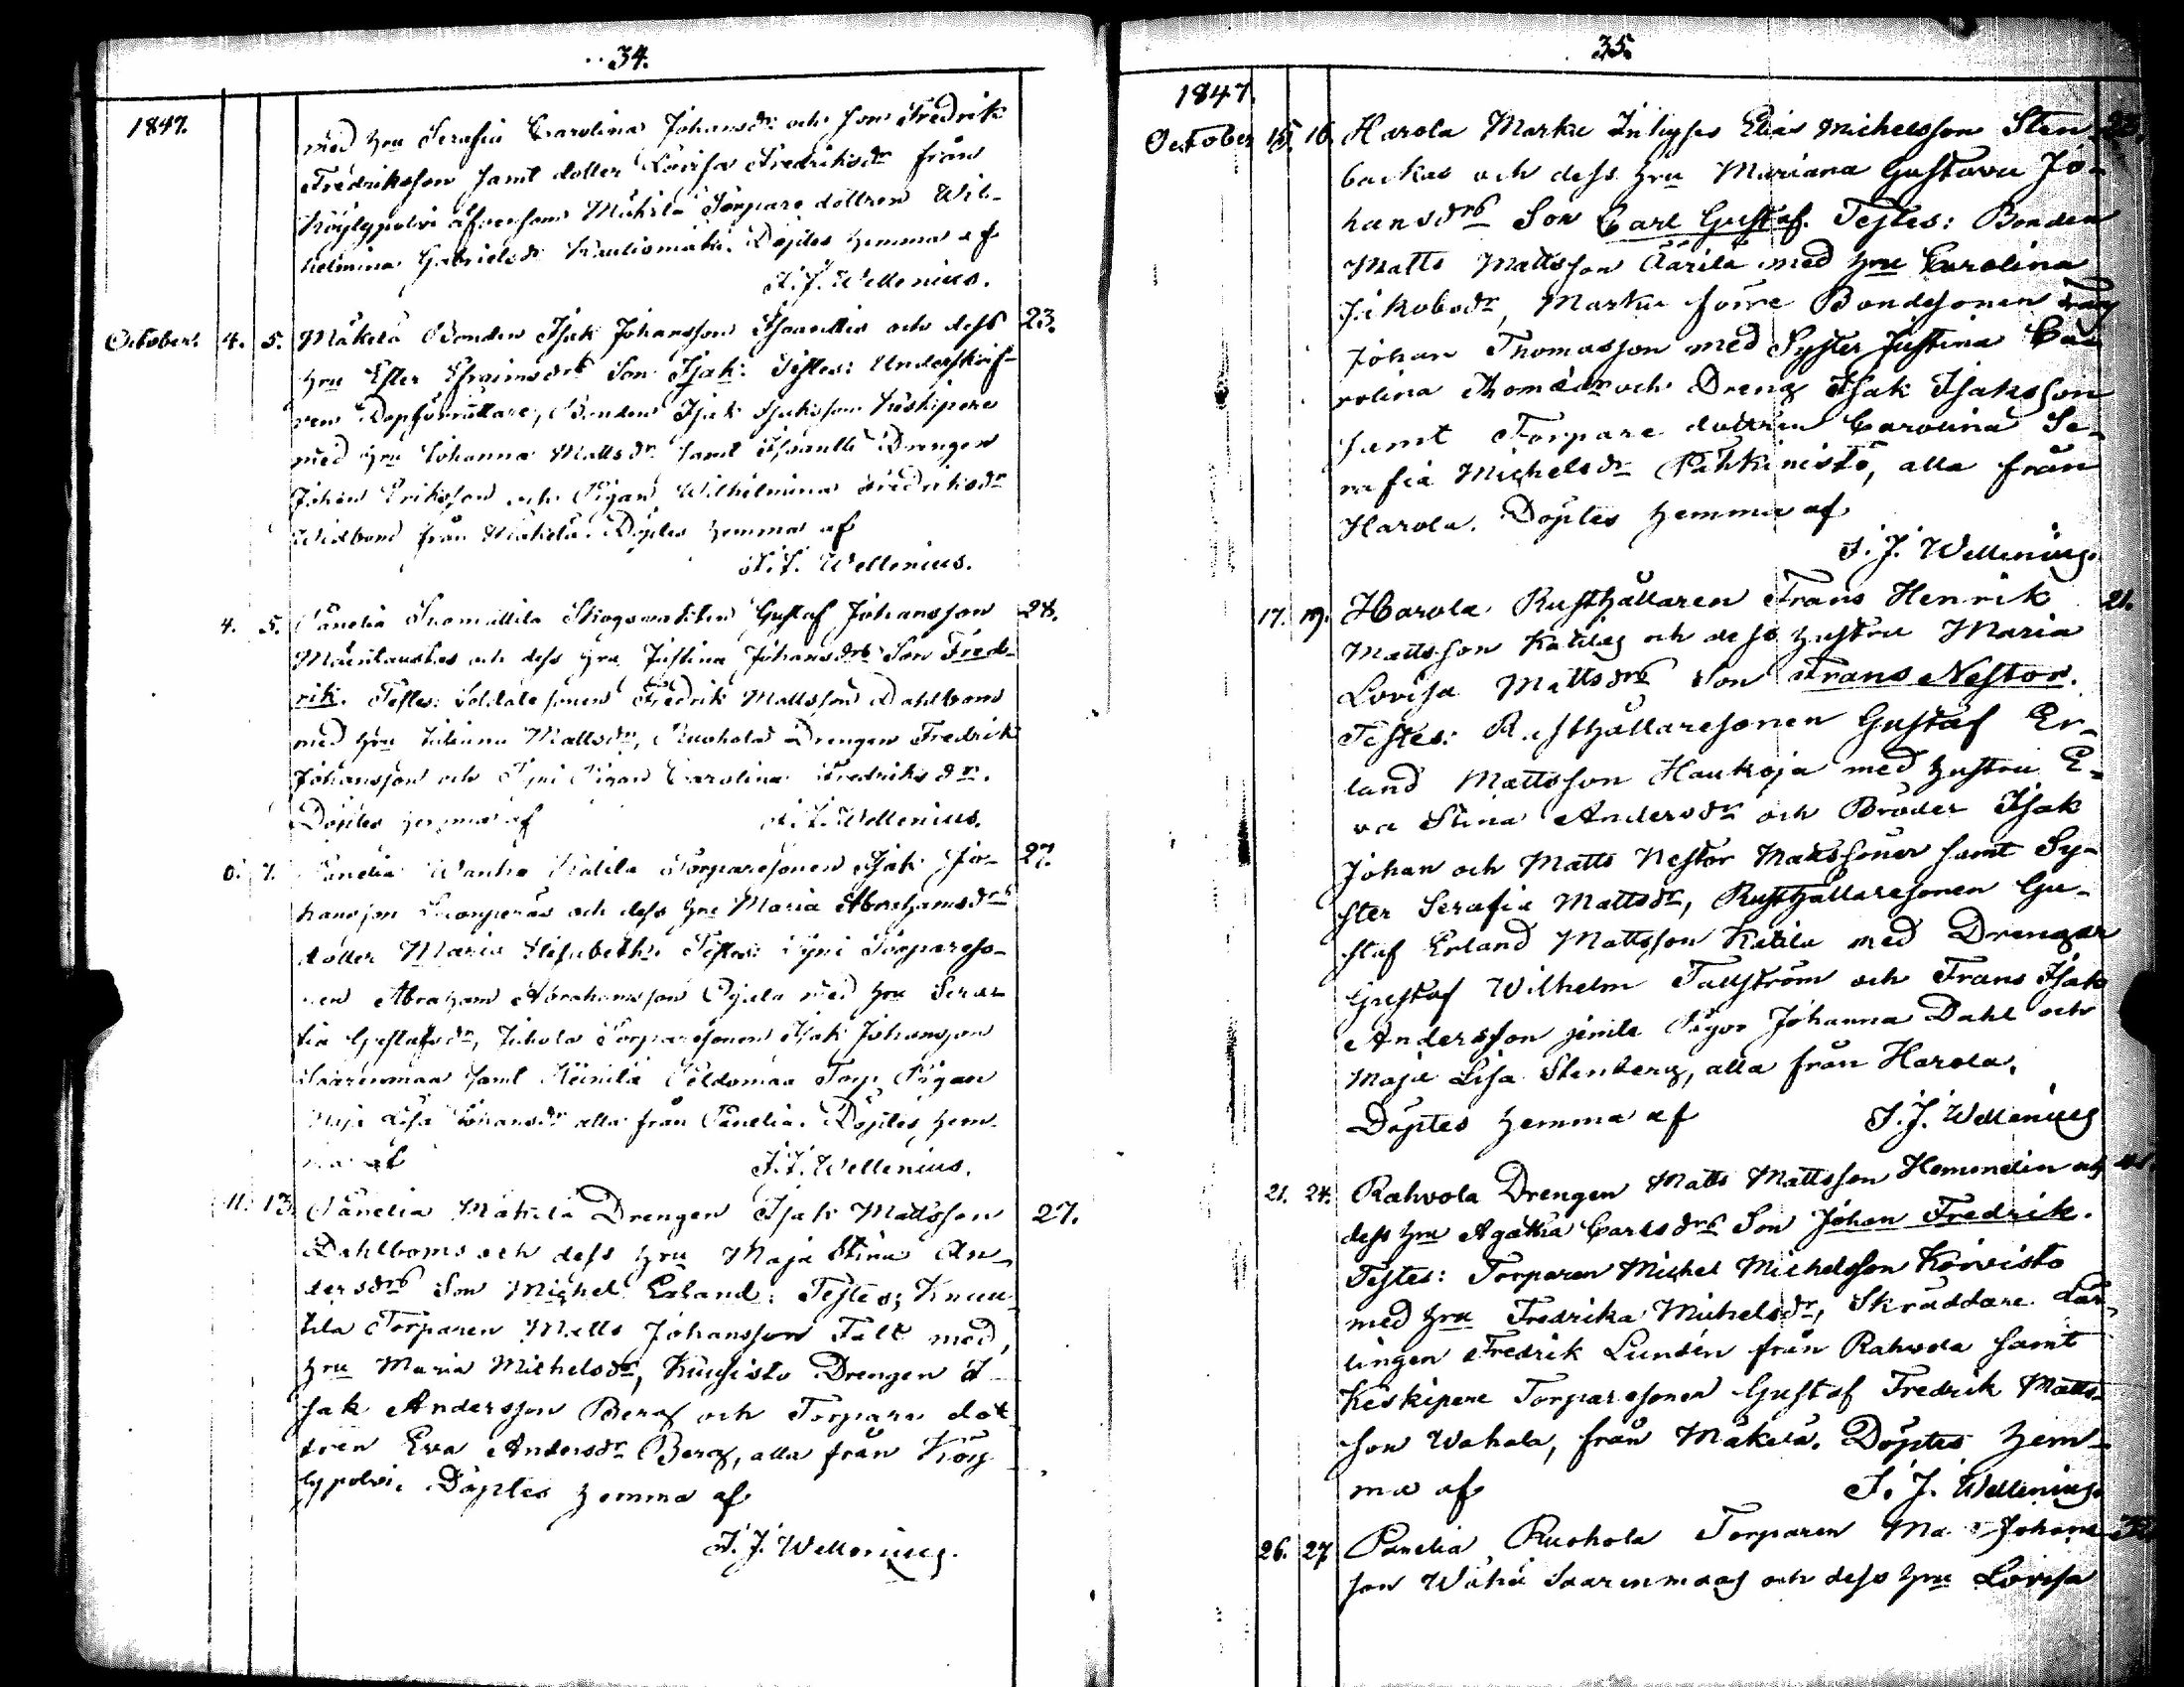 34.
1847.
med hru Serafia Carolina Johansdr och son Fredrik
Fredriksson samt dotter Lovisa Fredriksdr från
Köylypolvi äfvensom Mäkilä Torpare dottren Wil-
helmina Gabrielsdr Kauliomäki. Döptes hemma af
F. J. Wellenius.
October. 4. 5. Mäkelä Bonden Isak Johansson och dess 23.
hru Ester Efraimsdrs Son Isak. Testes: Underskrif-
ven Dopförrättare, Bonden Isak Isaksson Keskipere
med hru Johanna Mattsdr samt Drengen
Johan Eriksson och Pigan Wilhelmina Fredriksdr
Widbom från Mäkelä. Döptes hemma af
F. J. Wellenius.
4. 5. Panelia Skogvaktten Gustaf Johansson 28.
och dess hru Justina Johansdrs Son Fred-
rik. Testes: Soldate sonen Fredrik Mattsson Dahlbom
med hru Juliana Mattsdr, Ruohola Drengen Fredrik
Johansson och Pigan Carolina Fredriksdr.
Döptes hemma af F. J. Wellenius.
6. 7. Panelia Wanha Katila Torparesonen Isak Jo- 27.
hansson och dess hru Maria Abrahamsdrs
dotter Maria Elisabeth. Testes: Torpareso-
nen Abraham Abrahamsson med hru Sera-
fia Gustafsdr, Torparesonen Isak Johansson
Saarenmaa samt Peldomaa Torp Pigan
Maja Lisa Johansdr alla från Panelia. Döptes hem-
ma af F. J. Wellenius.
11. 13. Panelia Mäkilä Drengen Isak Mattsson 27.
Dahlboms och dess hru Maja Stina An-
dersdrs Son Michel Erland. Testes; Knuu-
tila Torparen Matts Johansson Falt med
hru Maria Michelsdr, Kuusisto Drengen I-
sak Andersson Berg och Torpare dot-
tren Eva Andersdr Berg, alla från Köy-
lypolvi. Döptes hemma af
F. J. Wellenius.
35.
1847.
October 15. 16. Harola Marku Inhyses Elias Michelsson Sten- 25.
backas och dess hru Mariana Gustava Jo-
hansdrs Son Carl Gustaf. Testes: Bonden
Matts Mattsson Äärilä med hru Carolina
Jakobsdr, Marku förre Bondesonen
Johan Thomasson med Syster Justina Ca-
rolina Thomasdr och Dreng Isak Isaksson
samt Torpare dottren Carolina Se-
rafia Michelsdr Pähkinistö, alla från
Harola. Döptes hemma af
F. J. Wellenius.
17. 19. Harola Rusthållaren Frans Henrik 21.
Mattsson Katilas och dess hustru Maria
Lovisa Mattsdrs Son Frans Nestor.
Testes: Rusthållaresonen Gustaf Er-
land Mattsson Haukoja med hustru E-
va Stina Andersdr och Bröder Isak
Johan och Matts Nestor Mattssöner samt Sy-
ster Serafia Mattsdr, Rusthållaresonen Gu-
staf Erland Mattsson Katila med Drengar
Gustaf Wilhelm Tallström och Frans Isak
Andersson jemte Pigor Johanna Dahl och
Maja Lisa Stenberg, alla från Harola.
Döptes hemma af F. J. Wellenius
21. 24. Rahvola Drengen Matts Mattsson Hemendin och
dess hru Agatha Carlsdrs Son Johan Fredrik.
Testes: Torparen Michel Michelsson Koivisto
med hru Fredrika Michelsdr, Skräddare Lär-
lingen Fredrik Lundén från Rahvola samt
Keskipere Torparesonen Gustaf Fredrik Matts-
son Wahala, från Mäkelä. Döptes hem-
ma af F. J. Wellenius.
26. 27. Panelia Ruohola Torparen Johans-
son Wähä Saarenmaas och dess hru Lovisa